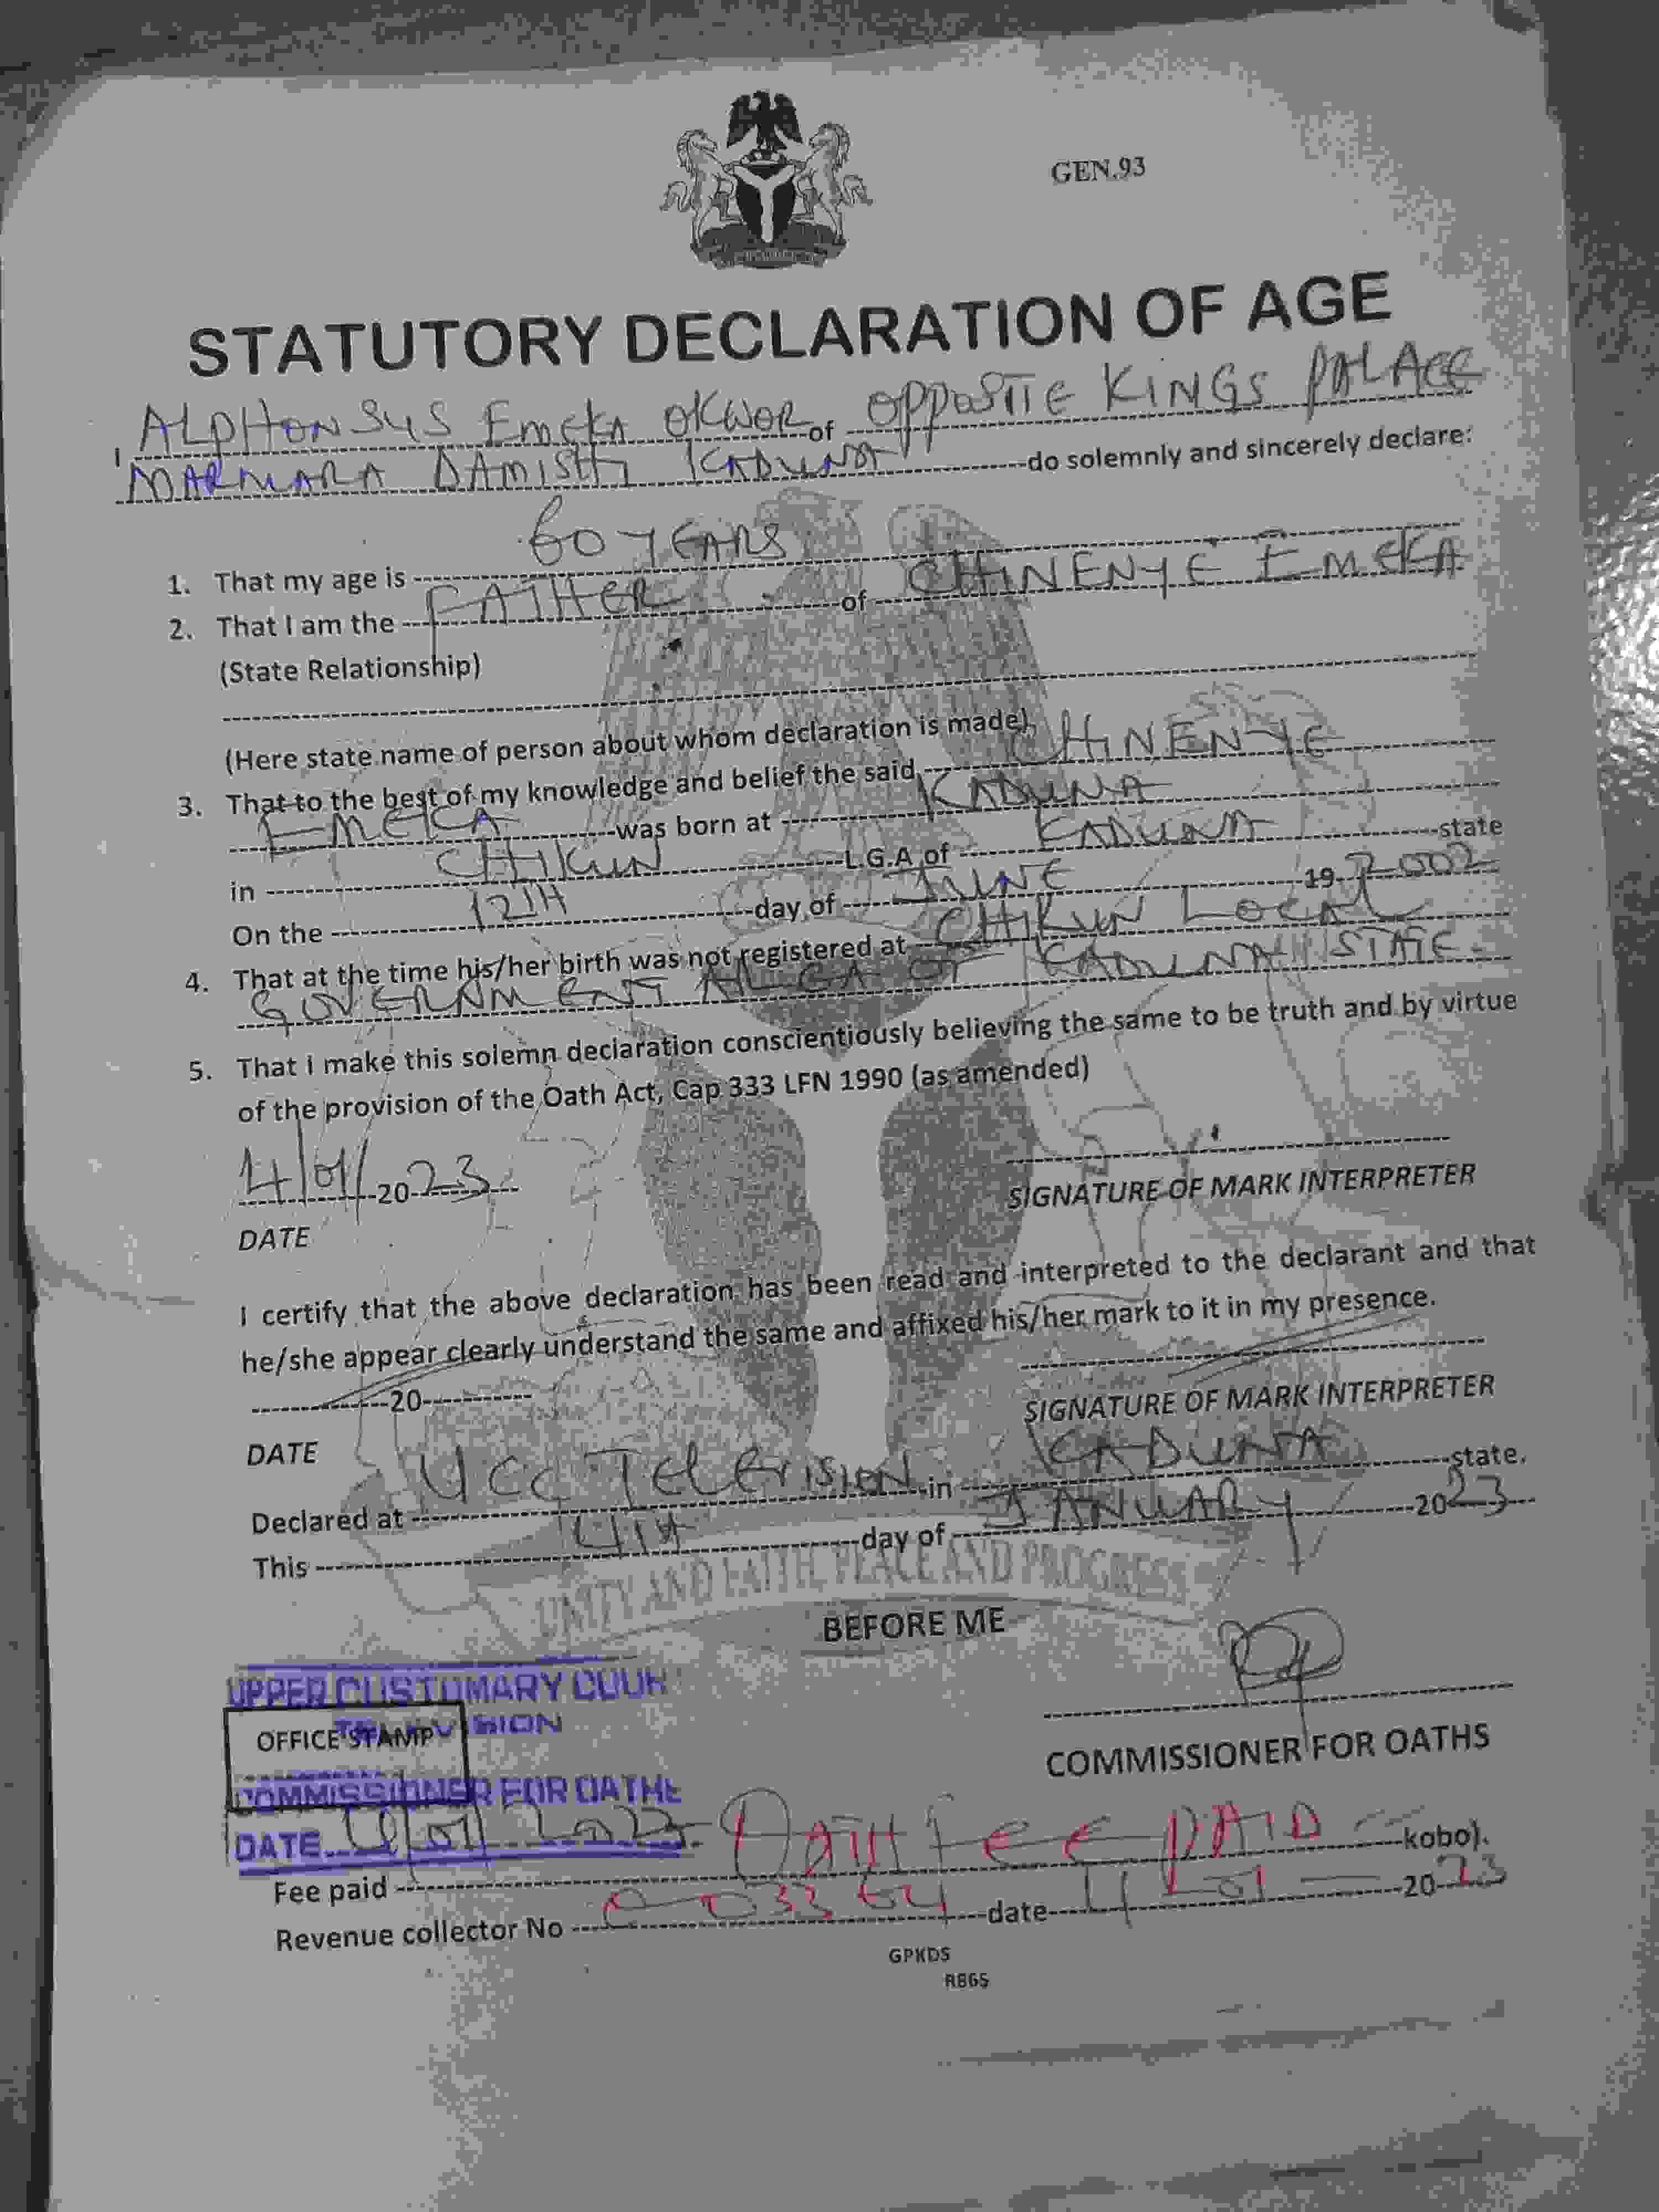 GEN.93
STATUTORY DECLARATION OF AGE
I, ALPHONSUS EMEKA OKWOR of OPPOSTIE KINGS PALACE
MARMARA DAMISHI KADUNA do solemnly and sincerely declare:
1. That my age is 60 YEARS
2. That I am the FATHER of CHINENYE EMEKA
(State Relationship)
(Here state name of person about whom declaration is made)
3. That to the best of my knowledge and belief the said CHINENYE
EMEKA was born at KADUNA
in CHIKUN L.G.A of KADUNA state
On the 12TH day of JUNE 19 2002
4. That at the time his/her birth was not registered at CHIKUN LOCAL
GOVERNMENT OF KADUNA STATE
5. That I make this solemn declaration conscientiously believing the same to be truth and by virtue
of the provision of the Oath Act, Cap 333 LFN 1990 (as amended)
4/01/2023
DATE
SIGNATURE OF MARK INTERPRETER
I certify that the above declaration has been read and interpreted to the declarant and that
he/she appear clearly understand the same and affixed his/her mark to it in my presence.
20
DATE
SIGNATURE OF MARK INTERPRETER
Declared at UCC Television in KADUNA state.
This 4TH day of JANUARY 2023
UNITY AND FAITH, PEACE AND PROGRESS
BEFORE ME
UPPER CUSTOMARY COUR
OFFICE STAMP
COMMISSIONER FOR OATHS
COMMISSIONER FOR OATHS
DATE 4/01/2023
Fee paid OATH FEE PAID kobo).
Revenue collector No date 4/01 2023
GPKDS
R865